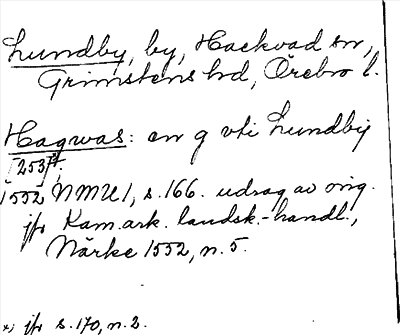 Lundby, by, Hackvad sn,
Grimstens hd, Örebro l.
Hagwas: en g vti Lundby
[253]
1552 NMU 1, s. 166. udrag av orig.
jfr Kam.ark. landsk.-handl.,
Närke 1552, n. 5.
x) jfr s. 170, n. 2.